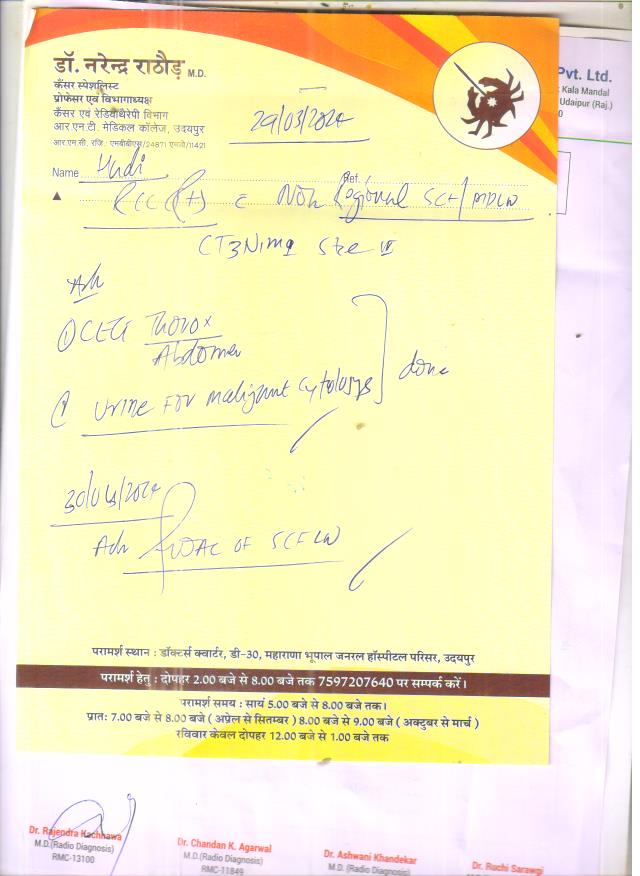 डॉ. नरेन्द्र राठौड़ M.D.
कैंसर स्पेशलिस्ट
प्रोफेसर एवं विभागाध्यक्ष
कैंसर एवं रेडियोथैरेपी विभाग
आर.एन.टी. मेडिकल कॉलेज, उदयपुर
आर.एम.सी. रजि.: एमबीबीएस/24871 एमडी/11421
29/03/2024
Name
Ref.
RCC (Rt) c Non Regional
CT3N1M1 Stge
Adv
① Thorax
Abdomen
Urine For malignant Cytology
done
30/03/2024
Adv FNAC OF SCFLN
परामर्श स्थान : डॉक्टर्स क्वार्टर, डी-30, महाराणा भूपाल जनरल हॉस्पीटल परिसर, उदयपुर
परामर्श हेतु : दोपहर 2.00 बजे से 8.00 बजे तक 7597207640 पर सम्पर्क करें।
परामर्श समय : सायं 5.00 बजे से 8.00 बजे तक।
प्रात: 7.00 बजे से 8.00 बजे ( अप्रेल से सितम्बर ) 8.00 बजे से 9.00 बजे ( अक्टुबर से मार्च )
रविवार केवल दोपहर 12.00 बजे से 1.00 बजे तक
Pvt. Ltd.
Kala Mandal
Udaipur (Raj.)
Dr. Rajendra Kachhawa
M.D.(Radio Diagnosis)
RMC-13100
Dr. Chandan K. Agarwal
M.D.(Radio Diagnosis)
RMC-11849
Dr. Ashwani Khandekar
M.D. (Radio Diagnosis)
Dr. Ruchi Sarawgi